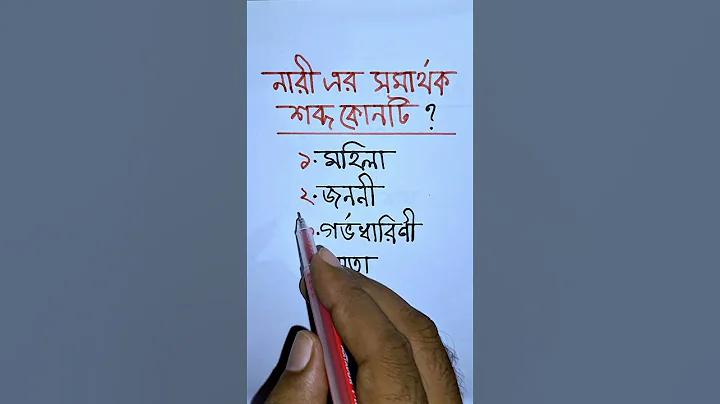 নারী এর সমার্থক
শব্দ কোনটি ?
১. মহিলা
২. জননী
গর্ভধারিণী